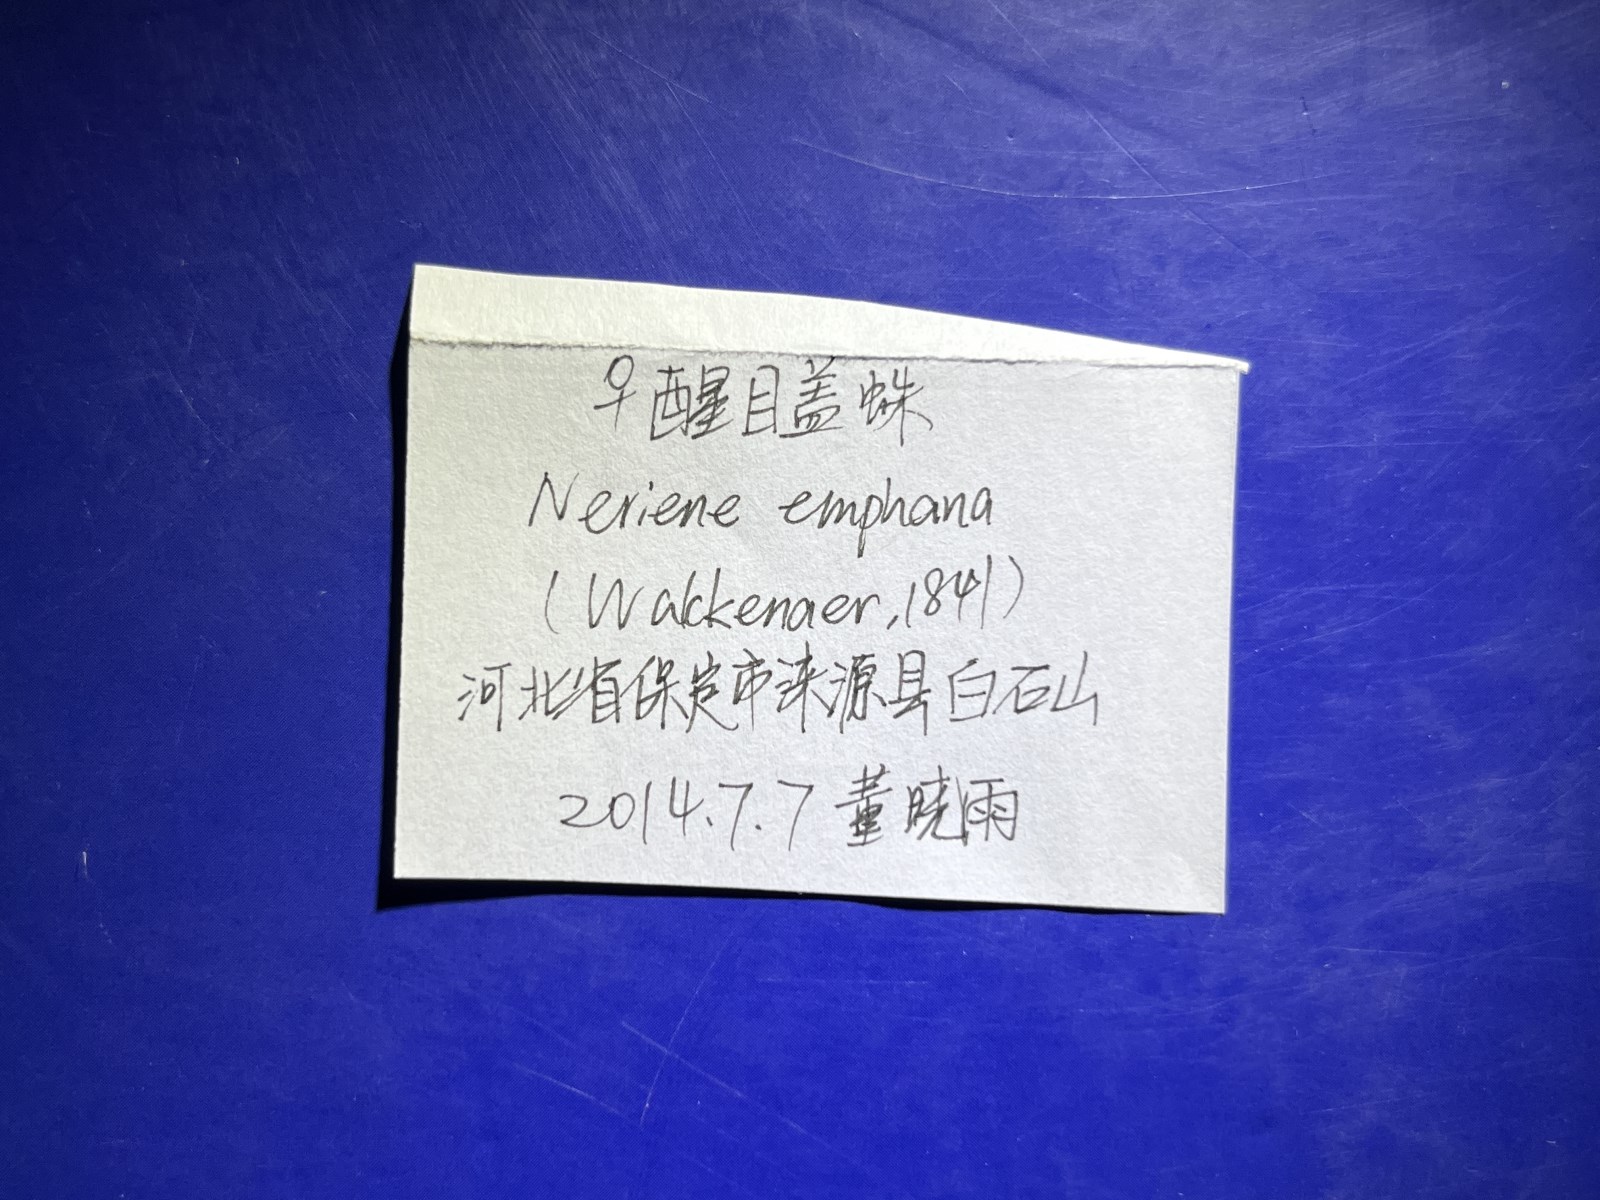 ♀醒目盖蛛
Neriene emphana
(Walckenaer,1841)
河北省保定市涞源县白石山
2014.7.7 董晓雨